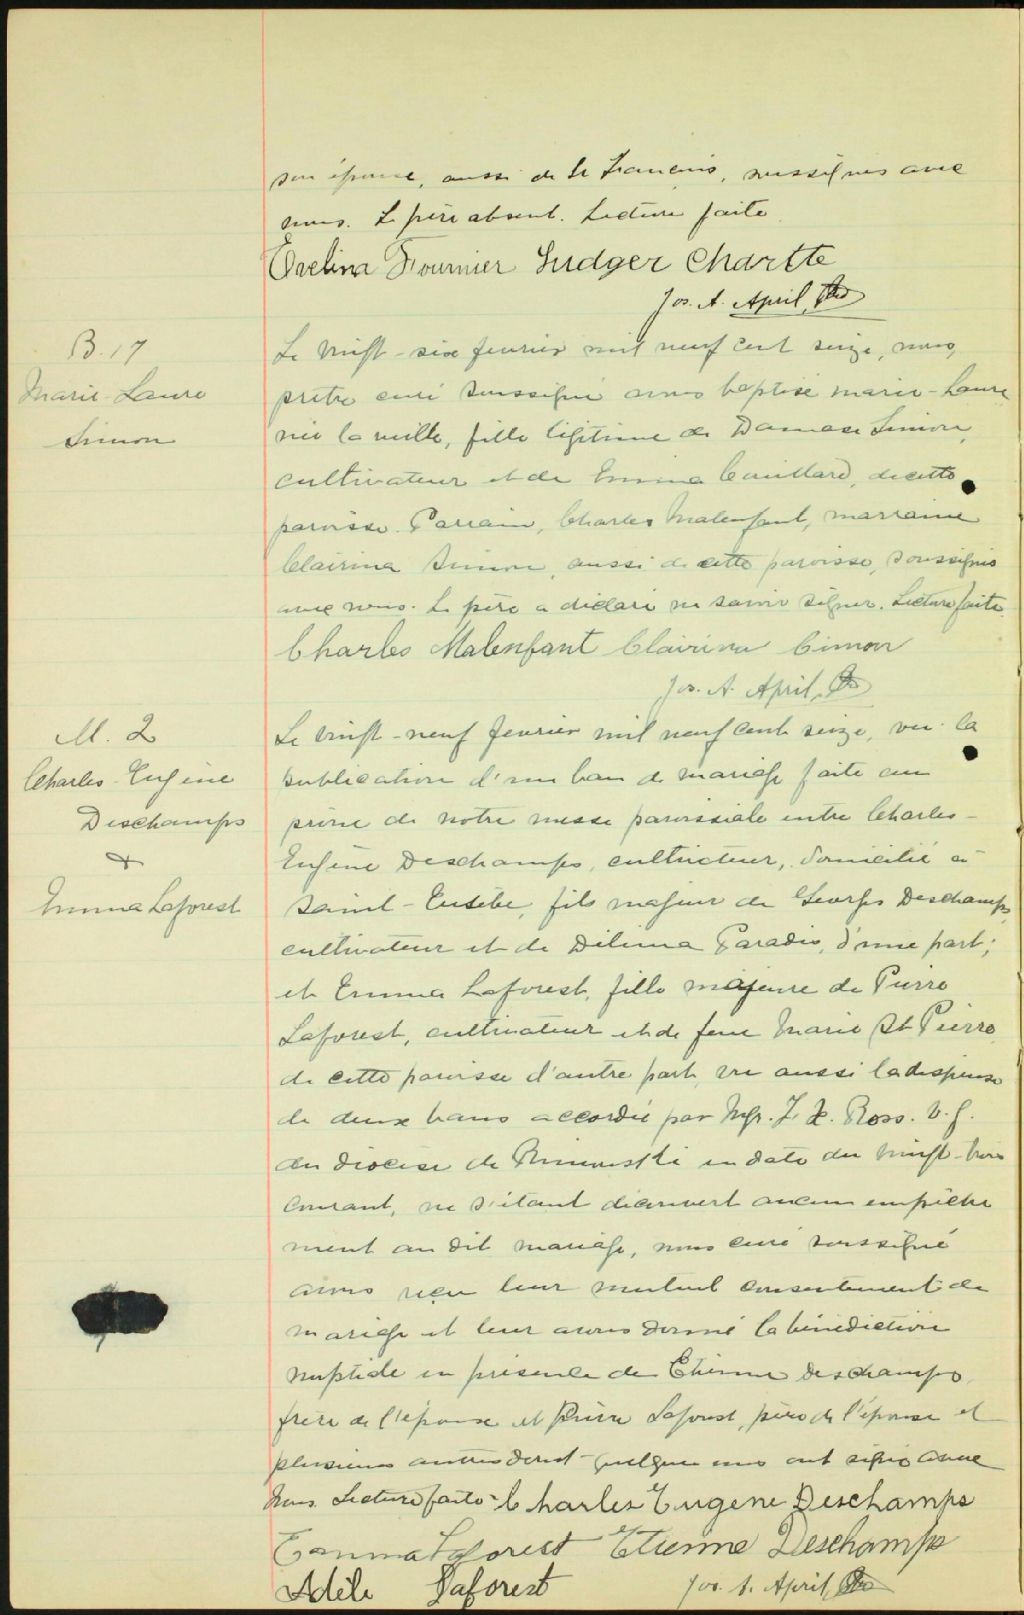 son épouse, aussi de St François, soussignés avec
nous. Le père absent. Lecture faite.
Evelina Fournier Ludger Chartte
Jos. A. April, Ptre
B. 17
Marie-Laure
Simon
Le vingt-six fevrier mil neuf cent seize, nous,
prêtre curé soussigné avons baptisé Marie-Laure
née la veille, fille légitime de Damase Simon,
cultivateur et de Emma Couillard, de cette
paroisse. Parrain, Charles Malenfant, marraine
Clairina Simon, aussi de cette paroisse, soussignés
avec nous. Le père a déclaré ne savoir signer. Lecture faite.
Charles Malenfant Clairina Cimon
Jos. A. April, Ptre
M. 2
Charles-Eugène
Deschamps
&
Emma Laforest
Le vingt-neuf fevrier mil neuf cent seize, vu la
publication d'un ban de mariage faite au
prône de notre messe paroissiale entre Charles-
Eugène Deschamps, cultivateur, domicilié à
Saint-Eusèbe, fils majeur de Georges Deschamps,
cultivateur et de Délima Paradis, d'une part;
et Emma Laforest, fille majeure de Pierre
Laforest, cultivateur et de feue Marie St Pierre,
de cette paroisse d'autre part, vu aussi la dispense
de deux bans accordée par Mgr. F. X. Ross. V. G.
du diocèse de Rimouski en date du vingt-trois
courant, ne s'étant découvert aucun empêche
ment au dit mariage, nous curé soussigné
avons reçu leur mutuel consentement de
mariage et leur avons donné la bénédiction
nuptiale en présence de Etienne Deschamps,
frère de l'époux et Pierre Laforest, père de l'épouse et
plusieurs autres dont quelques uns ont signé avec
nous. Lecture faite. Charles Eugène Deschamps
Emma Laforest Etienne Deschamps
Adèle Laforest Jos. A. April, Ptre